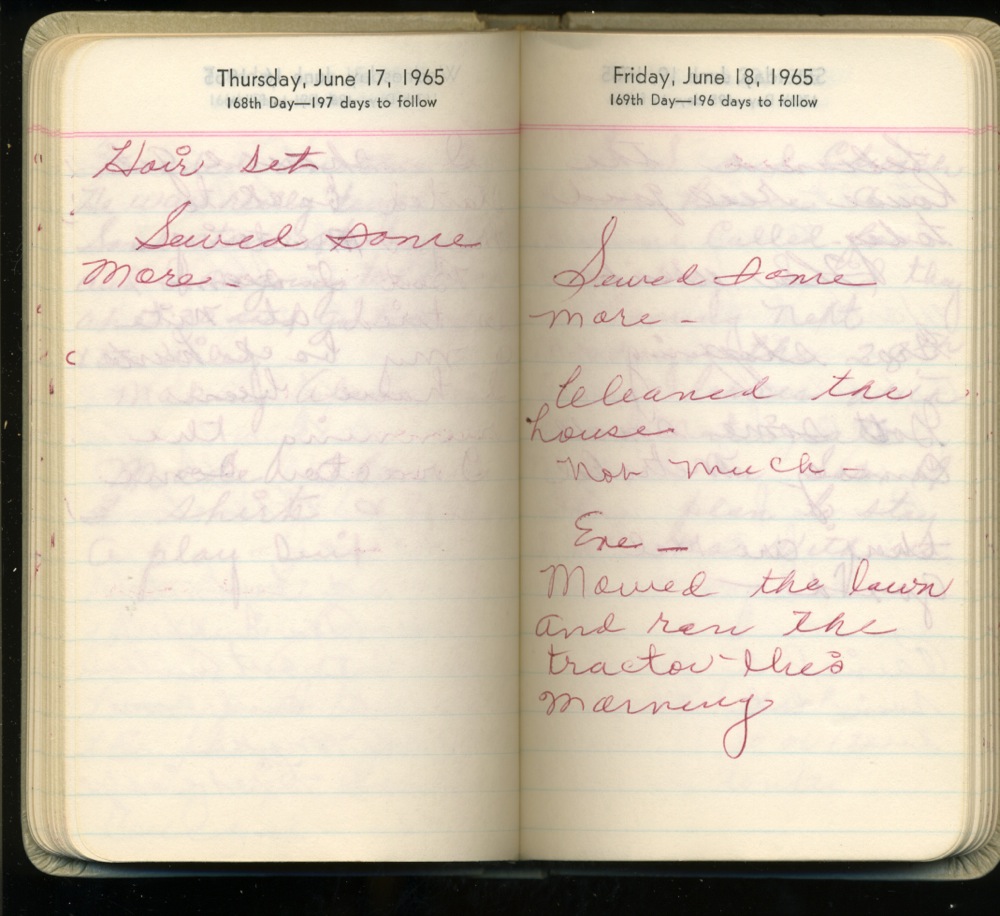 Thursday, June 17, 1965
168th Day—197 days to follow
Hair set
Sewed some
more -
Friday, June 18, 1965
169th Day—196 days to follow
Sewed some
more -
Cleaned the
house
Not much -
Eve -
Mowed the lawn
and ran the
tractor this
morning